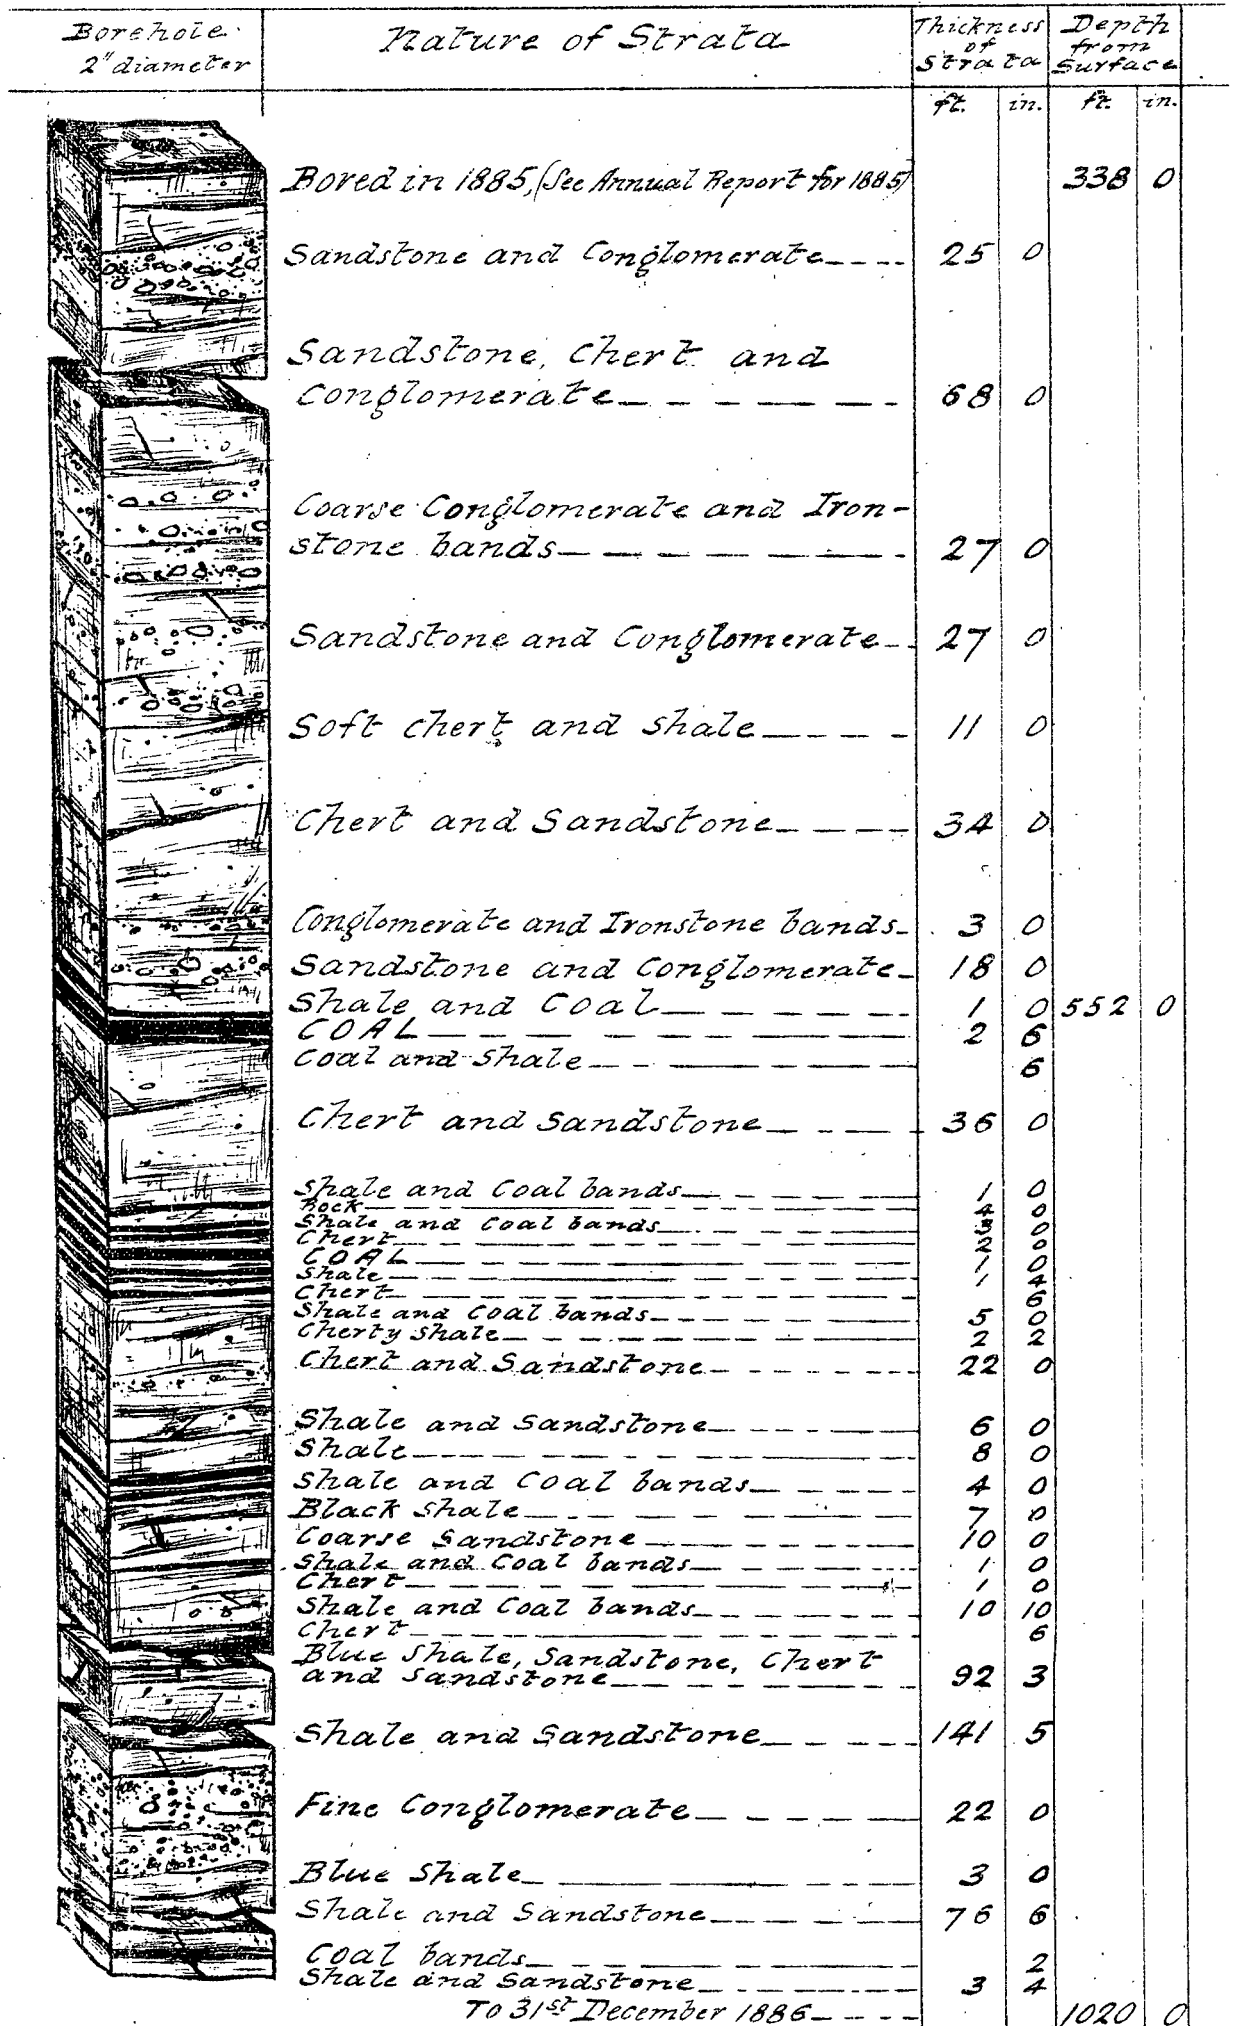 Borehole 2" diameter
Nature of Strata
Thickness of Strata
Depth from Surface
ft. in. ft. in.
Bored in 1885, (See Annual Report for 1885) 338 0
Sandstone and Conglomerate 25 0
Sandstone, Chert and
Conglomerate 68 0
Coarse Conglomerate and Iron-
stone bands 27 0
Sandstone and Conglomerate 27 0
Soft chert and shale 11 0
Chert and Sandstone 34 0
Conglomerate and Ironstone bands 3 0
Sandstone and Conglomerate 18 0
Shale and Coal 1 0 552 0
COAL 2 6
Coal and Shale 6
Chert and Sandstone 36 0
Shale and Coal bands 1 0
Rock 4 0
Shale and Coal bands 3 0
Chert 2 0
COAL 1 0
Shale 1 4
Chert 6
Shale and Coal bands 5 0
Cherty Shale 2 2
Chert and Sandstone 22 0
Shale and Sandstone 6 0
Shale 8 0
Shale and Coal bands 4 0
Black Shale 7 0
Coarse Sandstone 10 0
Shale and Coal bands 1 0
Chert 1 0
Shale and Coal bands 10 10
Chert 6
Blue Shale, Sandstone, Chert
and Sandstone 92 3
Shale and Sandstone 141 5
Fine Conglomerate 22 0
Blue Shale 3 0
Shale and Sandstone 76 6
Coal bands 2
Shale and Sandstone 3 4
To 31st December 1886 1020 0